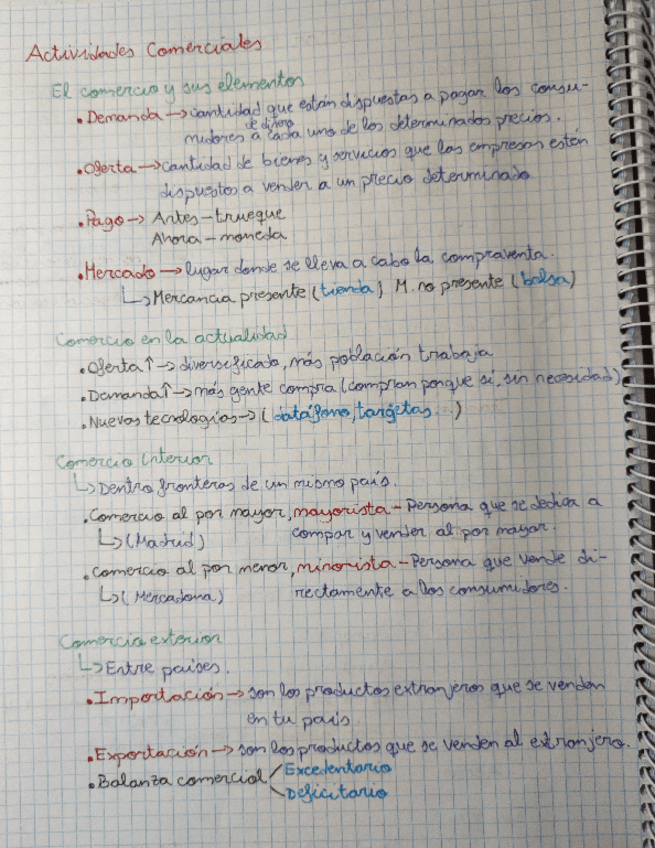 Actividades Comerciales
El comercio y sus elementos
• Demanda → cantidad que están dispuestas a pagar los consu-
de dinero
midores a cada uno de los determinados precios.
• Oferta → cantidad de bienes y servicios que las empresas estén
dispuestos a vender a un precio determinado
• Pago → Antes - trueque
Ahora - moneda
• Mercado → lugar donde se lleva a cabo la compraventa.
↳ Mercancia presente (tienda) M. no presente (bolsa)
Comercio en la actualidad
• Oferta ↑ → diversificado, más población trabaja
• Demanda ↑ → más gente compra (compran porque sí, sin necesidad)
• Nuevas tecnologías → (datáfono, targetas...)
Comercio Interior
↳ Dentro fronteras de un mismo país.
• Comercio al por mayor, mayorista - Persona que se dedica a
↳ (Madrid) compar y vender al por mayor.
• Comercio al por menor, minorista - Persona que vende di-
↳ (Mercadona) rectamente a los consumidores.
Comercio exterior
↳ Entre países.
• Importación → son los productos extranjeros que se venden
en tu país
• Exportación → son los productos que se venden al extranjero.
• Balanza comercial Excedentario
Deficitario